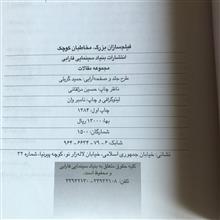 فیلمسازان بزرگ، مخاطبان کوچک
انتشارات بنیاد سینمایی فارابی
مجموعه مقالات
طرح جلد و صفحه‌آرایی: حمید گریلی
ناظر چاپ: حسین مزلقانی
لیتوگرافی و چاپ: ناصر وان
چاپ اول: ۱۳۸۴
بها: ۱۳۰۰۰ ریال
شمارگان: ۱۵۰۰
شابک: ۶ - ۷۹ - ۶۶۳۴ - ۹۶۴
نشانی: خیابان جمهوری اسلامی، خیابان لاله‌زار نو، کوچه پیرنیا، شماره ۳۲
کلیه حقوق متعلق به بنیاد سینمایی فارابی
و محفوظ است.
تلفن: